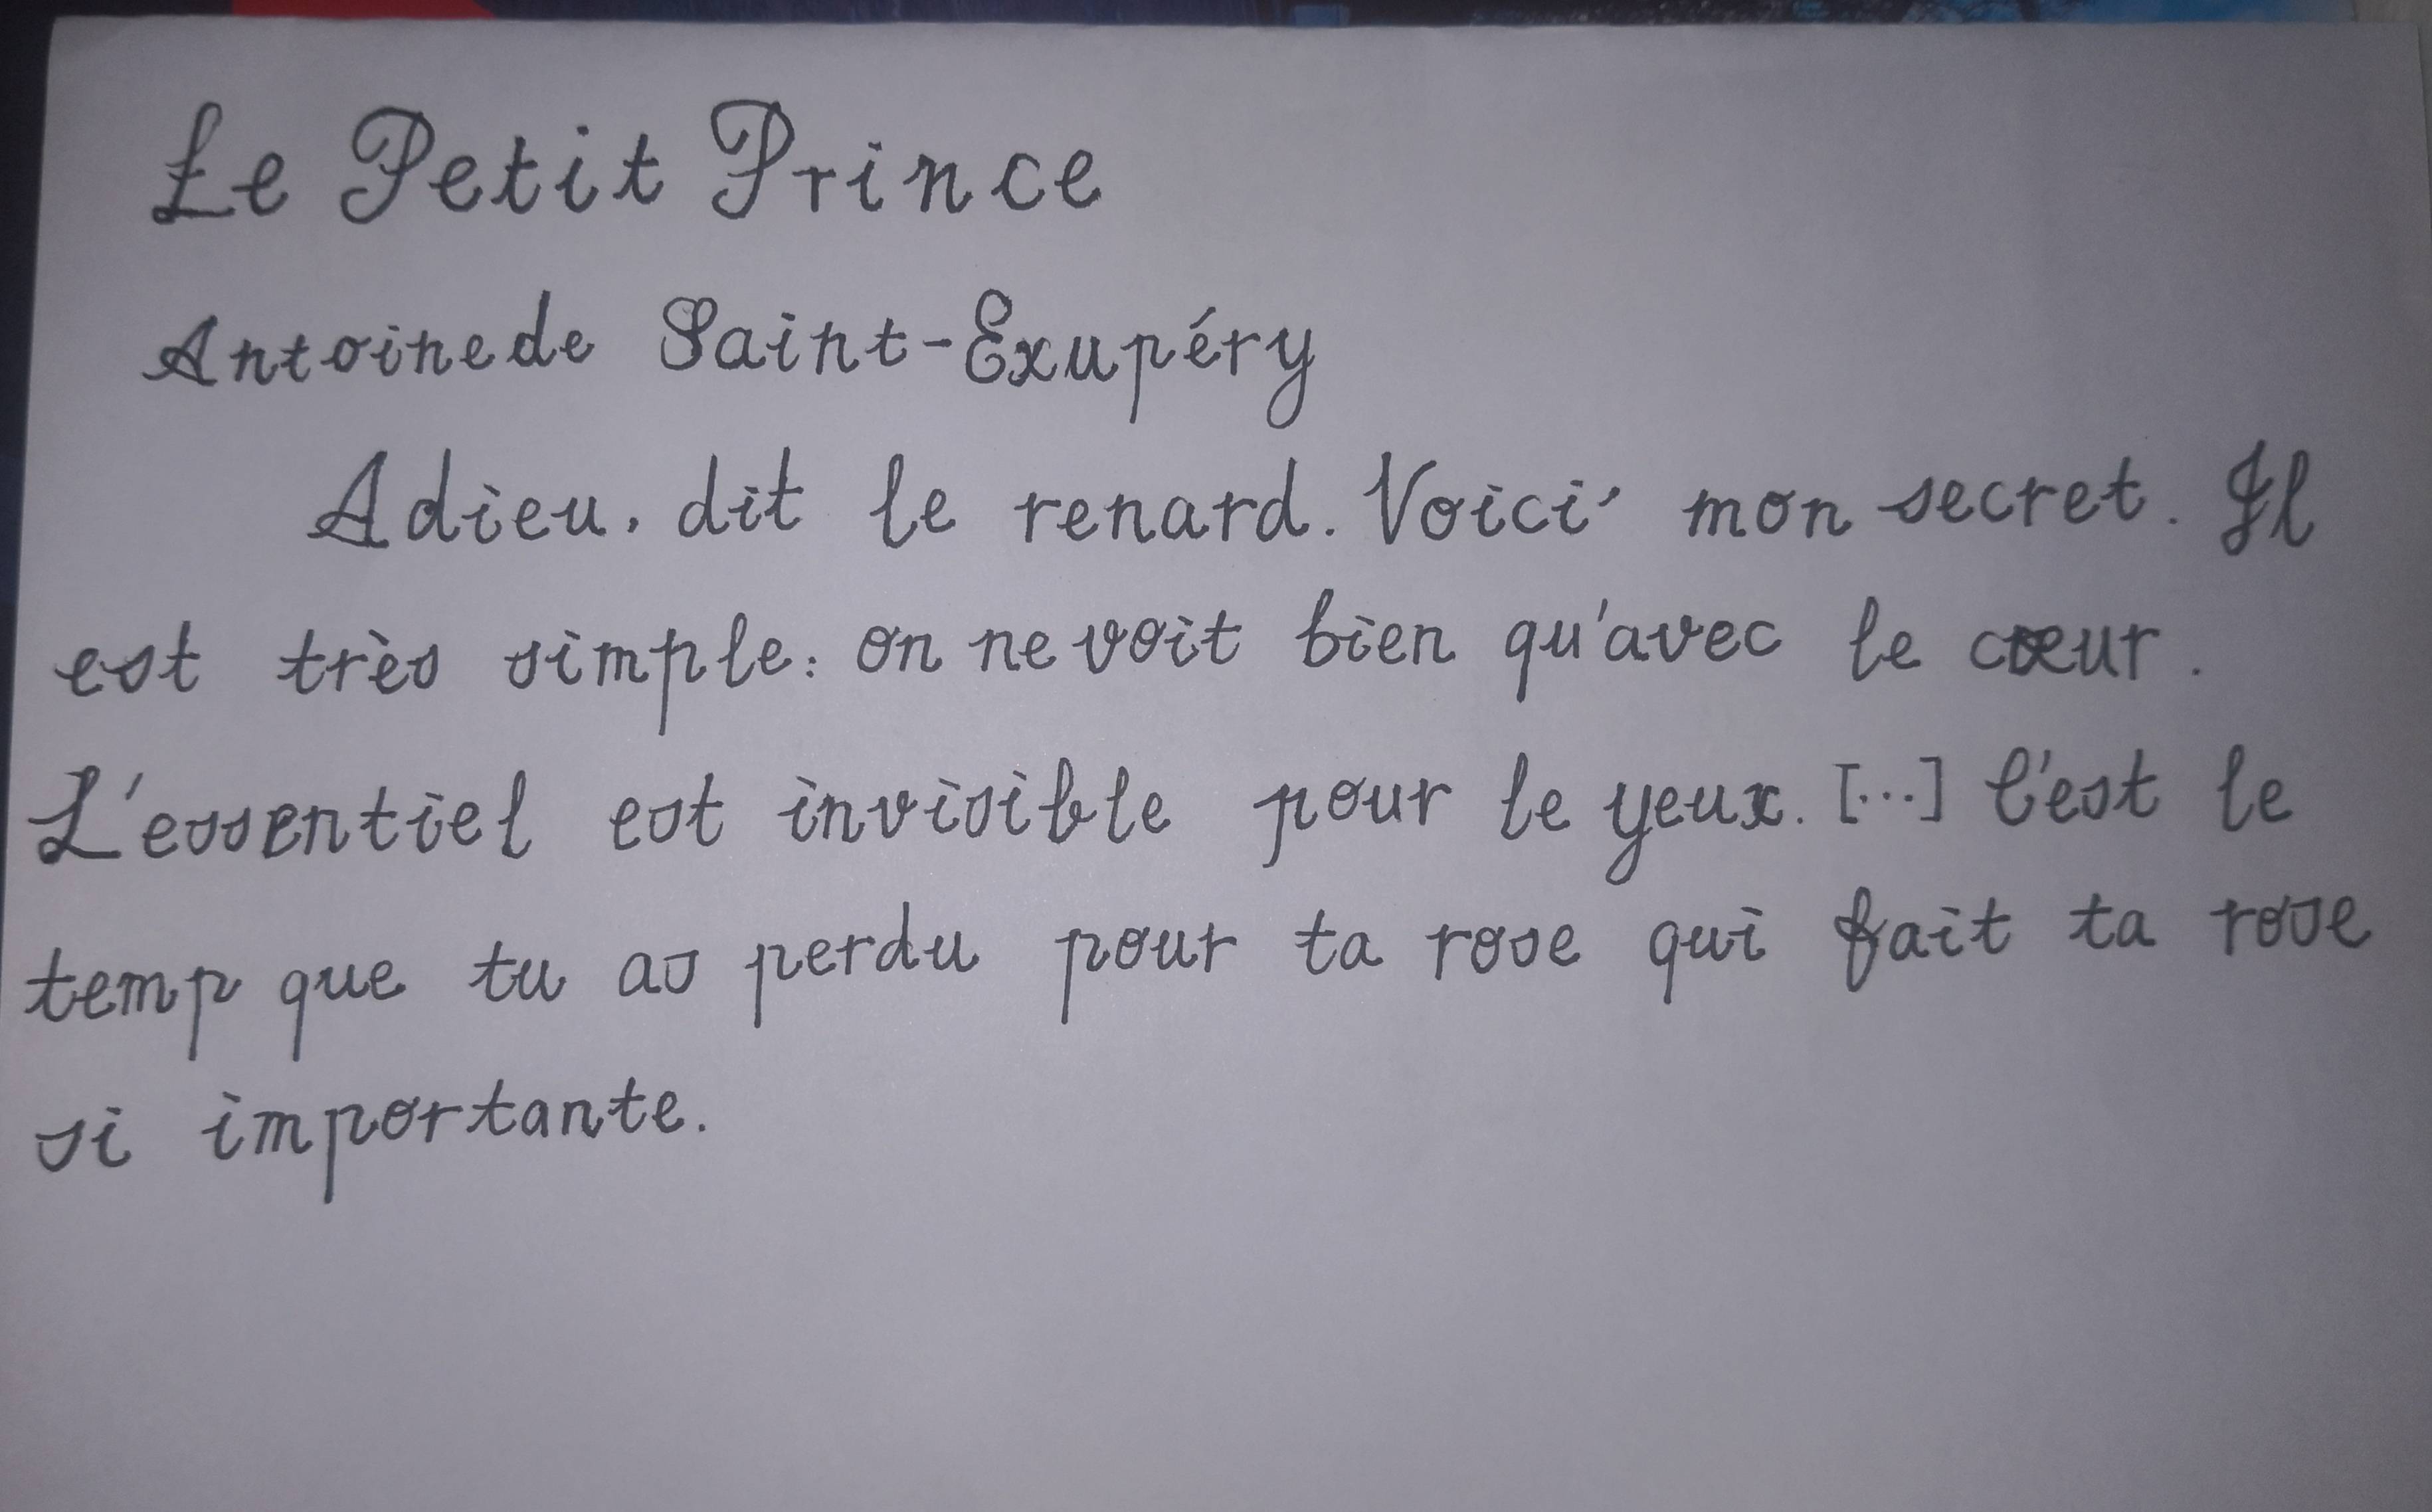 Le Petit Prince
Antoine de Saint-Exupéry
Adieu, dit le renard. Voici mon secret. Il
est très simple: on ne voit bien qu'avec le cœur.
L'essentiel est invisible pour le yeux. [...] C'est le
temp que tu as perdu pour ta rose qui fait ta rose
si importante.